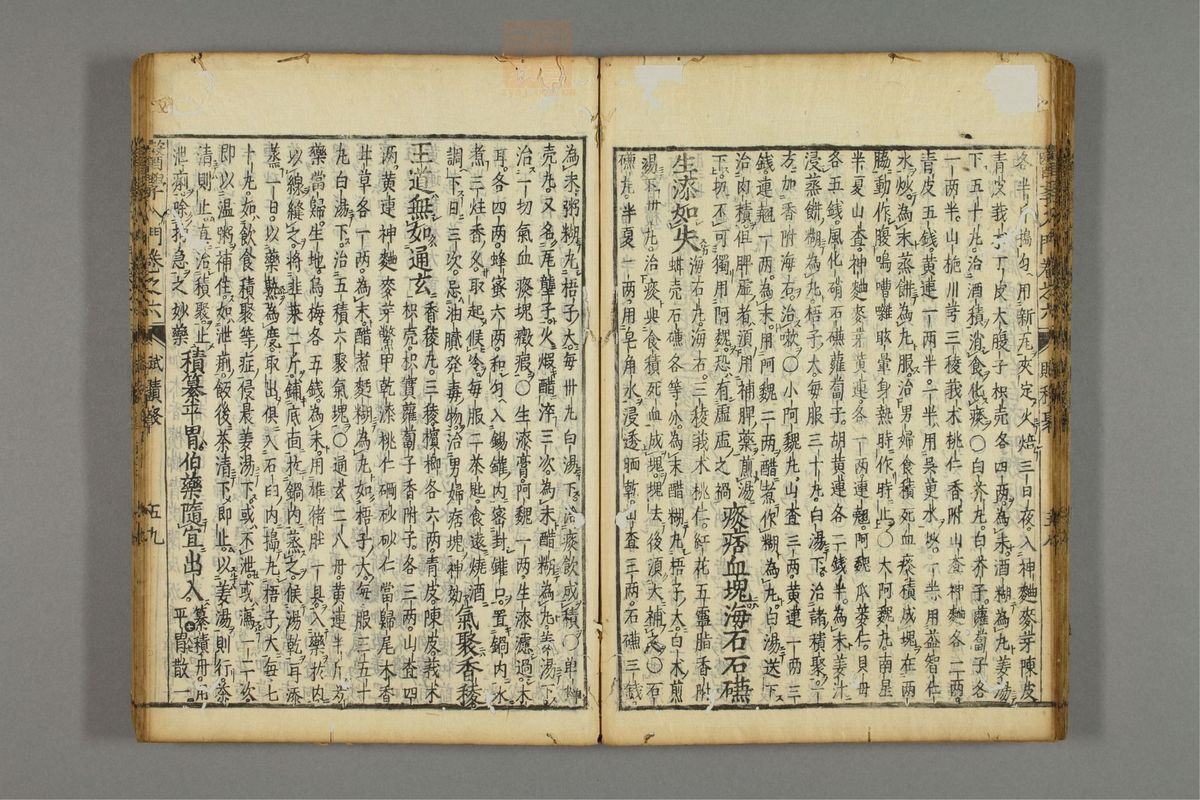 各半搗勻用新瓦夾定火焙三日夜入神麯麥芽陳皮
青皮莪朮丁皮大腹子枳壳各四兩為末酒糊為丸姜湯
下五十丸治酒積消食化痰〇白芥丸白芥子蘿蔔子各
一兩半山梔川芎三稜莪朮桃仁香附山查神麯各一兩
青皮五錢黃連一兩半一半用吳萸水炒一半用益智仁
水炒為末蒸餅為丸服治男婦食積死血痰積成塊在兩
脇動作腹鳴嘈囃眩暈身熱時作時止〇大阿魏丸南星
半夏山查神麯麥芽黃連各一兩連翹阿魏瓜蔞仁貝母
各五錢風化硝石礆蘿蔔子胡黃連各二錢半為末姜汁
浸蒸餅糊為丸梧子大每服三十丸白湯下治諸積聚一
方加香附海石治嗽〇小阿魏丸山查三兩黃連一兩三
錢連翹一兩為末用阿魏二兩醋煮作糊為丸白湯送下
治肉積但脾虛者須用補脾藥煎湯
下切不可獨用阿魏恐有虛虛之禍 痰痞血塊海石石礆
生漆如失 蚌壳石礆各等分為末醋糊丸梧子大白朮煎
湯下卅丸治痰與食積死血成塊塊去後須大補〇石
礆丸半夏一兩用皂角水浸透晒乾山查三兩石礆三錢
為末粥糊丸梧子大每卅丸白湯下治痰飲成積〇單
壳丸又名瓦壟子火煆醋淬三次為末醋糊為丸姜湯下
治一切氣血痰塊癥瘕〇生漆膏阿魏一兩生漆濾過木
耳各四兩蜂蜜六兩和勻入錫罐內密封罐口置鍋內水
煮三炷香久取起候冷每服二茶匙食遠燒酒
調下日三次忌油膩發毒物治男婦痞塊神効 氣聚香稜
王道無如通玄 香稜丸三稜檳榔各六兩青皮陳皮莪朮
枳壳枳實蘿蔔子香附子各三兩山查四
兩黃連神麯麥芽鱉甲乾漆桃仁硇砂砂仁當歸尾木香
甘草各一兩為末醋煮麪糊為丸如梧子大每服三五十
九白湯下治五積六聚氣塊〇通玄二八丹黃連半斤芍
藥當歸生地烏梅各五錢為末用雄猪肚一具入藥於內
以線縫之將韭菜二斤鋪底面於鍋內蒸之候湯乾耳添
蒸一日以藥熟為度取出俱入石臼內搗丸梧子大每七
十丸如飲食積聚等症侵晨姜湯下或不泄或瀉一二次
即以溫粥補住如泄痢飯後茶清下即止以姜湯則行茶
清則止眞治積聚止
泄痢除狐急之妙藥 積纂平胃伯藥隨宜出入 纂積丹用
平胃散一
醫學入門卷之六
試積發
五九